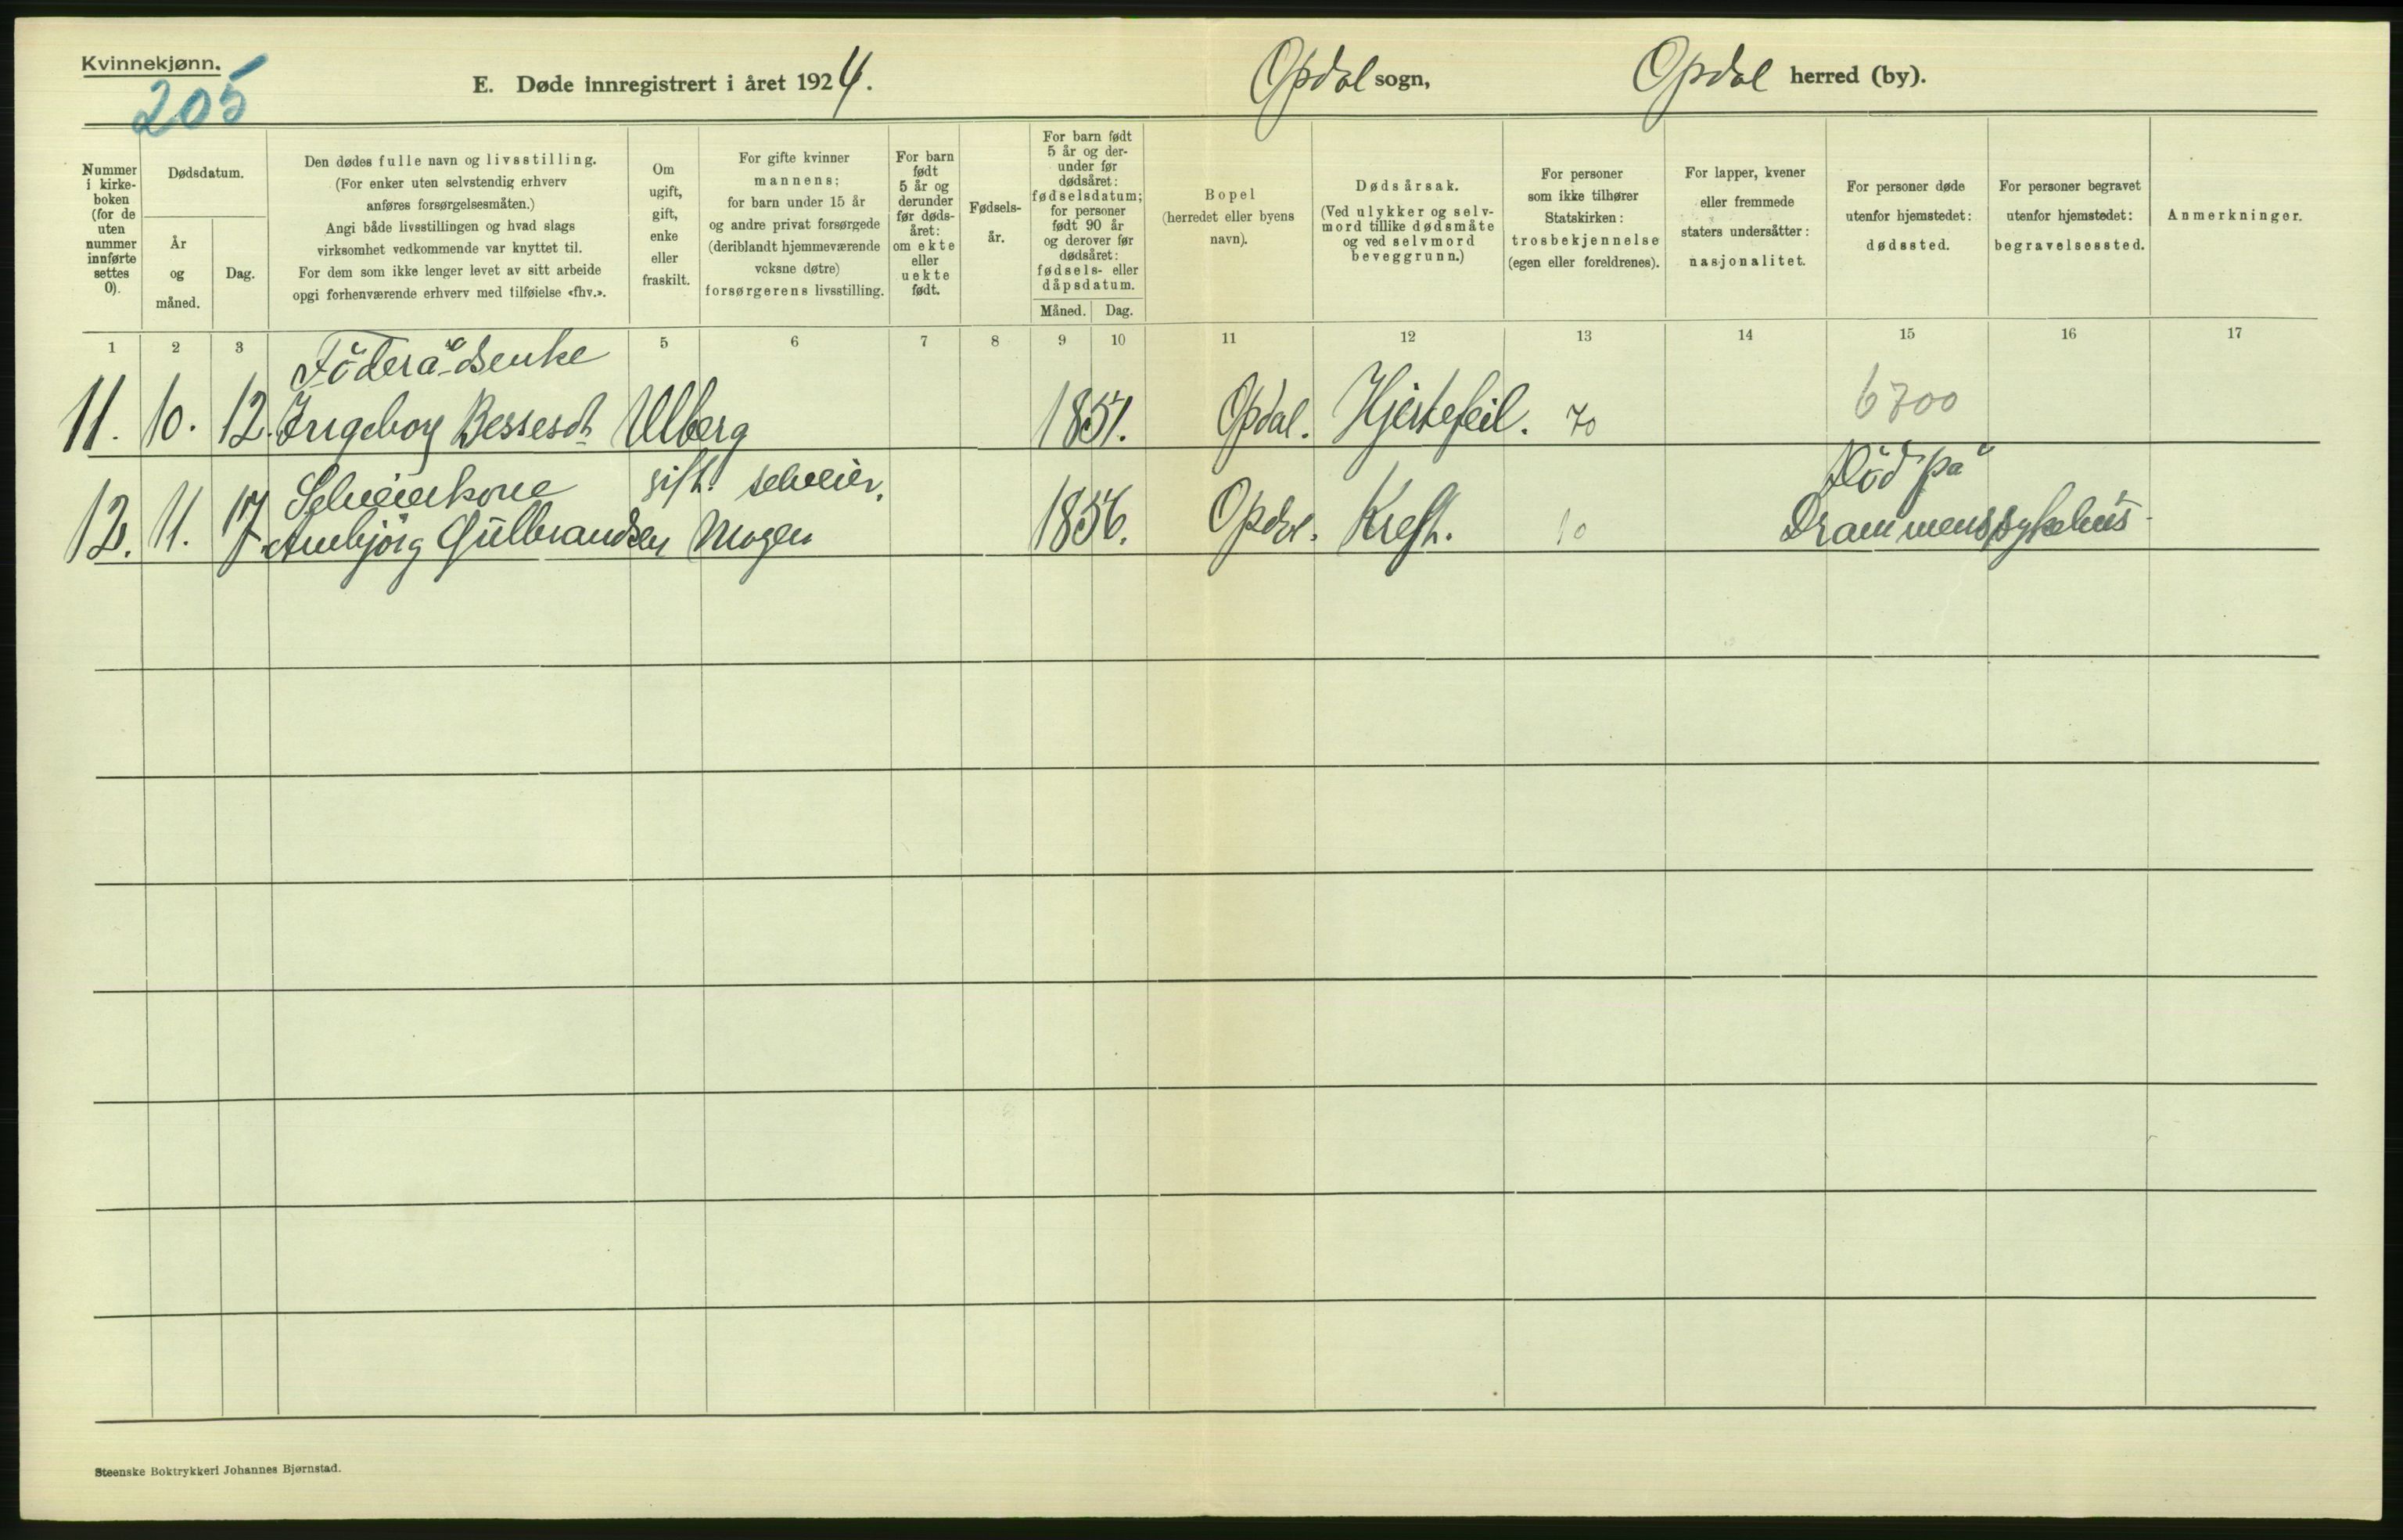 Kvinnekjønn.
205
E. Døde innregistrert i året 1924.
Opdal sogn,
Opdal herred (by).
Nummer i kirke- boken (for de uten nummer innførte settes 0).
Dødsdatum.
År og måned.
Dag.
Den dødes fulle navn og livsstilling.
(For enker uten selvstendig erhverv
anføres forsørgelsesmåten.)
Angi både livsstillingen og hvad slags
virksomhet vedkommende var knyttet til.
For dem som ikke lenger levet av sitt arbeide
opgi forhenværende erhverv med tilføielse «fhv.».
Om ugift, gift, enke eller fraskilt.
For gifte kvinner
mannens;
for barn under 15 år
og andre privat forsørgede
(deriblandt hjemmeværende
voksne døtre)
forsørgerens livsstilling.
For barn født 5 år og derunder før døds- året: om ekte eller uekte født.
Fødsels- år.
For barn født
5 år og der-
under før
dødsåret:
fødselsdatum;
for personer
født 90 år
og derover før
dødsåret:
fødsels- eller
dåpsdatum.
Måned. Dag.
Bopel
(herredet eller byens
navn).
Dødsårsak.
(Ved ulykker og selv-
mord tillike dødsmåte
og ved selvmord
beveggrunn.)
For personer
som ikke tilhører
Statskirken:
trosbekjennelse
(egen eller foreldrenes).
For lapper, kvener
eller fremmede
staters undersåtter:
nasjonalitet.
For personer døde
utenfor hjemstedet:
dødssted.
For personer begravet
utenfor hjemstedet:
begravelsessted.
Anmerkninger.
1 2 3 5 6 7 8 9 10 11 12 13 14 15 16 17
Föderådsenke
11. 10. 12. Ingeborg Bessesdt Ulberg 1851. Opdal. Hjertefeil. 70 6700
Selveierkone gift. selveier. Död på
12. 11. 17. Ambjörg Gulbrandsen Mogen 1856. Opdal. Kreft. 10 Drammens sykehus
Steenske Boktrykkeri Johannes Bjørnstad.